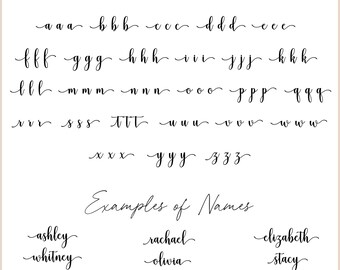 a a a b b b c c c d d d e e e
f f f g g g h h h i i i j j j k k k
l l l m m m n n n o o o p p p q q q
r r r s s s t t t u u u v v v w w w
x x x y y y z z z
Examples of Names
ashley rachael elizabeth
whitney olivia stacy